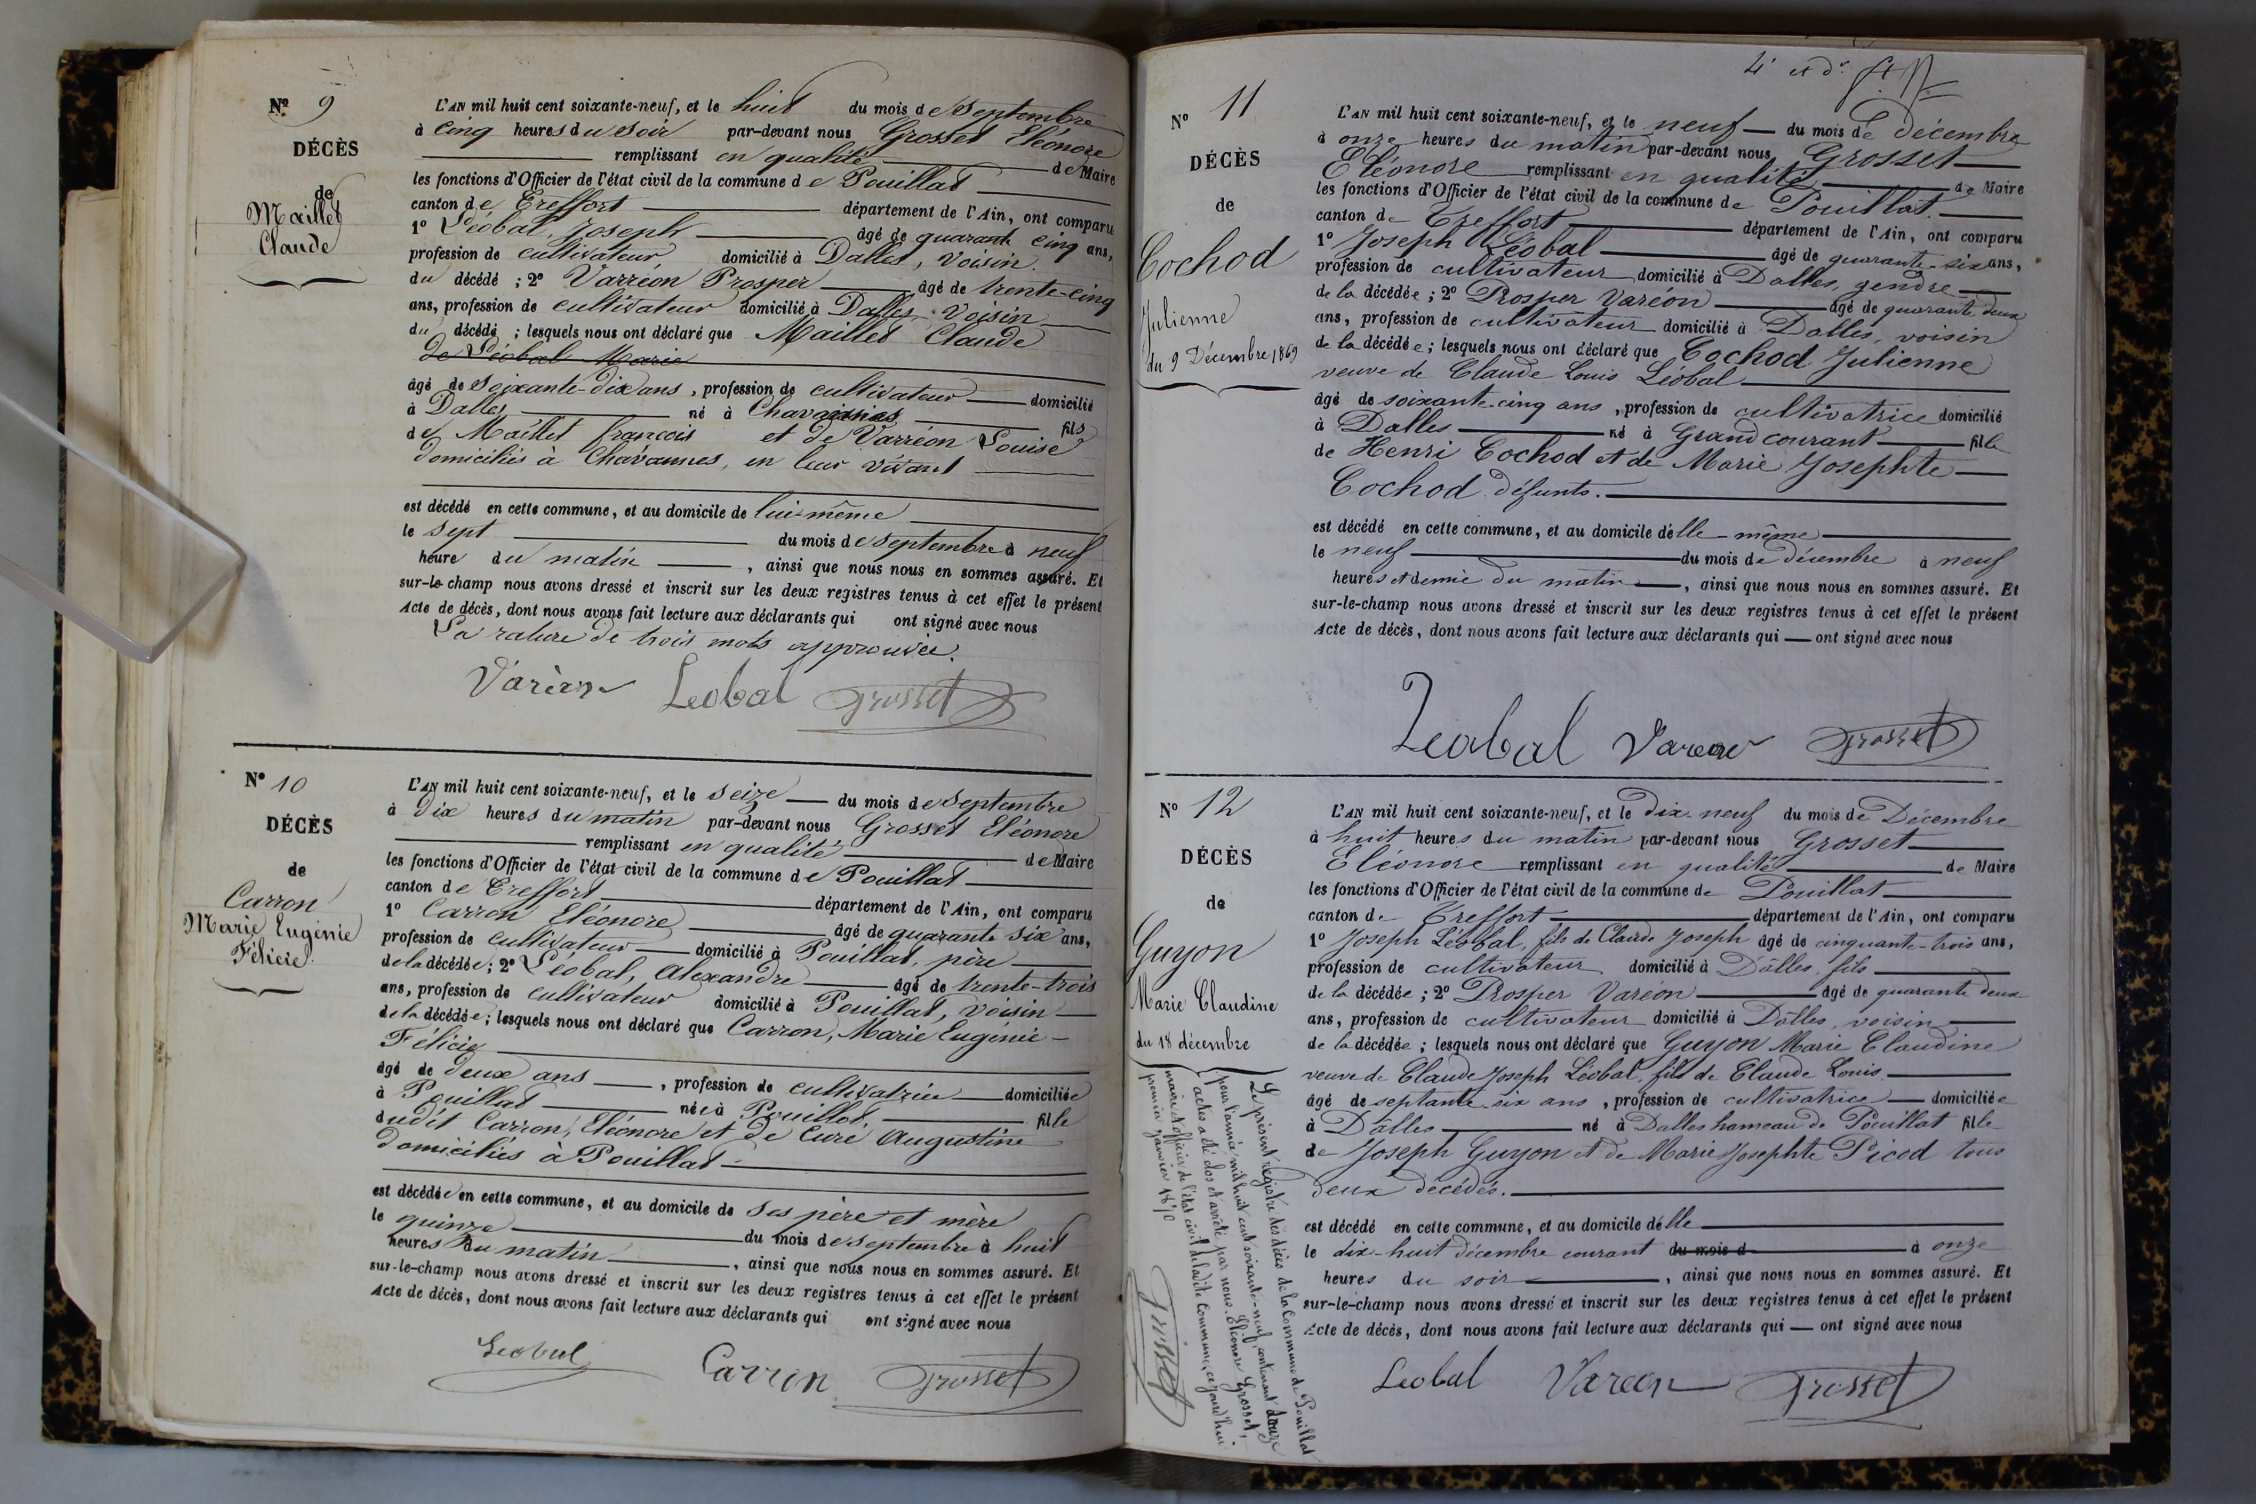 Nº 9
DÉCÈS
de
Maillet
Claude
L'AN mil huit cent soixante-neuf, et le huit du mois de Septembre
à cinq heures du soir par-devant nous Grosset Eléonore
remplissant en qualité de Maire
les fonctions d'Officier de l'état civil de la commune de Pouillat
canton de Treffort département de l'Ain, ont comparu
1º Léobal, Joseph âgé de quarante cinq ans,
profession de cultivateur domicilié à Dalles, voisin
du décédé ; 2º Varréon Prosper âgé de trente-cinq
ans, profession de cultivateur domicilié à Dalles voisin
du décédé ; lesquels nous ont déclaré que Maillet Claude
de Léobal Marie
âgé de soixante-dix ans, profession de cultivateur domicilié
à Dalles né à fils
de Maillet françois et de Varréon Louise
domiciliés à Chavannes, en leur vivant
est décédé en cette commune, et au domicile de lui-même
le sept du mois de septembre à neuf
heure du matin, ainsi que nous nous en sommes assuré. Et
sur-le-champ nous avons dressé et inscrit sur les deux registres tenus à cet effet le présent
Acte de décès, dont nous avons fait lecture aux déclarants qui ont signé avec nous
La rature de trois mots approuvée.
Varéon Leobal Grosset
Nº 10
DÉCÈS
de
Carron
Marie Eugénie
Félicie
L'AN mil huit cent soixante-neuf, et le seize du mois de Septembre
à dix heures du matin par-devant nous Grosset Eléonore
remplissant en qualité de Maire
les fonctions d'Officier de l'état civil de la commune de Pouillat
canton de Treffort département de l'Ain, ont comparu
1º Carron Eléonore âgé de quarante six ans,
profession de cultivateur domicilié à Pouillat, père
de la décédée ; 2º Léobal, Alexandre âgé de trente-trois
ans, profession de cultivateur domicilié à Pouillat, voisin
de la décédée ; lesquels nous ont déclaré que Carron, Marie Eugénie
Félicie
âgé de deux ans, profession de cultivatrice domiciliée
à Pouillat née à Pouillat, fille
dudit Carron, Eléonore et de Curé Augustine
domiciliés à Pouillat
est décédée en cette commune, et au domicile de ses père et mère
le quinze du mois de septembre à huit
heures du matin, ainsi que nous nous en sommes assuré. Et
sur-le-champ nous avons dressé et inscrit sur les deux registres tenus à cet effet le présent
Acte de décès, dont nous avons fait lecture aux déclarants qui ont signé avec nous
Leobal Carron Grosset
4e et dr.
Nº 11
DÉCÈS
de
Cochod
Julienne
du 9 Décembre 1869
L'AN mil huit cent soixante-neuf, et le neuf du mois de décembre
à onze heures du matin par-devant nous Grosset
Eléonore remplissant en qualité de Maire
les fonctions d'Officier de l'état civil de la commune de Pouillat
canton de Treffort département de l'Ain, ont comparu
1º Joseph Léobal âgé de quarante-six ans,
profession de cultivateur domicilié à Dalles, gendre
de la décédée ; 2º Prosper Varéon âgé de quarante deux
ans, profession de cultivateur domicilié à Dalles, voisin
de la décédée ; lesquels nous ont déclaré que Cochod Julienne
veuve de Claude Louis Léobal
âgé de soixante-cinq ans, profession de cultivatrice domicilié
à Dalles né à Grand courant fille
de Henri Cochod et de Marie Josephte
Cochod défunts.
est décédé en cette commune, et au domicile d'elle-même
le neuf du mois de décembre à neuf
heures et demie du matin, ainsi que nous nous en sommes assuré. Et
sur-le-champ nous avons dressé et inscrit sur les deux registres tenus à cet effet le présent
Acte de décès, dont nous avons fait lecture aux déclarants qui ont signé avec nous
Leobal Vareon Grosset
Nº 12
DÉCÈS
de
Guyon
Marie Claudine
du 18 décembre
L'AN mil huit cent soixante-neuf, et le dix-neuf du mois de Décembre
à huit heures du matin par-devant nous Grosset
Eléonore remplissant en qualité de Maire
les fonctions d'Officier de l'état civil de la commune de Pouillat
canton de Treffort département de l'Ain, ont comparu
1º Joseph Léobal, fils de Claude Joseph âgé de cinquante-trois ans,
profession de cultivateur domicilié à Dâlles fils
de la décédée ; 2º Prosper Varéon âgé de quarante deux
ans, profession de cultivateur domicilié à Dâlles, voisin
de la décédée ; lesquels nous ont déclaré que Guyon Marie Claudine
veuve de Claude Joseph Léobal, fils de Claude Louis
âgé de septante-six ans, profession de cultivatrice domiciliée
à Dâlles né à Dalles hameau de Pouillat fille
de Joseph Guyon et de Marie Josephte Picod tous
deux décédés.
est décédé en cette commune, et au domicile d'elle
le dix-huit décembre courant du mois d à onze
heures du soir, ainsi que nous nous en sommes assuré. Et
sur-le-champ nous avons dressé et inscrit sur les deux registres tenus à cet effet le présent
Acte de décès, dont nous avons fait lecture aux déclarants qui ont signé avec nous
Leobal Vareon Grosset
Le présent registre des décès de la Commune de Pouillat
pour l'année mil huit cent soixante-neuf, contenant douze
actes a été clos et arrêté par nous Eléonore Grosset,
maire et officier de l'état civil de la dite Commune, ce jourd'hui
premier janvier 1870
Grosset